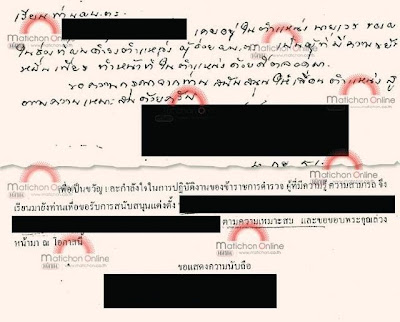 เรียน ท่าน ผบ.ตร.
เคยอยู่ในตำแหน่ง นายเวร
ตำแหน่ง ผู้ช่วย ผบ.ตร. เป็นผู้ที่มีความขยัน
หมั่นเพียร ทำหน้าที่ในตำแหน่งด้วยดีตลอดมา
ขอความกรุณาจากท่าน สนับสนุนให้เลื่อนตำแหน่ง
ตามความเหมาะสมด้วยครับ
เพื่อเป็นขวัญ และกำลังใจในการปฏิบัติงานของข้าราชการตำรวจ ผู้ที่มีความรู้ ความสามารถ จึง
เรียนมายังท่านเพื่อขอรับการสนับสนุนแต่งตั้ง
ตามความเหมาะสม และขอขอบพระคุณล่วง
หน้ามา ณ โอกาสนี้
ขอแสดงความนับถือ
Matichon Online
www.matichon.co.th